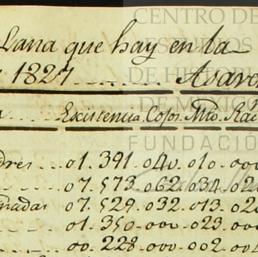 Lana que hay en la
1827 Asaver
Escistencia Cojos Mto. Rai
dres 01.391 040 010 000
07.573 062 034 02
nadas 07.529 032 013 02
01.350 000 023 00
00.228 000 002 00
CENTRO DE
ESTUDIOS
DE HISTORIA
DE MEXICO
FUNDACIÓN